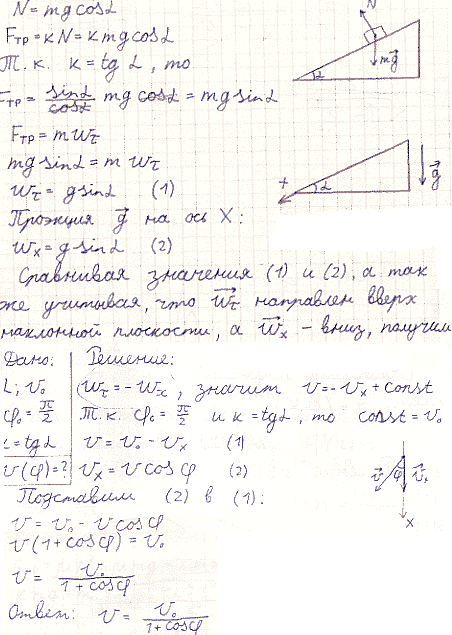 N = mg cosα
Fтр = кN = к mg cosα
Т.к. к = tgα, то
Fтр = sinα/cosα mg cosα = mg sinα
Fтр = m wτ
mg sinα = m wτ
wτ = g sinα (1)
Проэкция g⃗ на ось X:
wx = g sinα (2)
Сравнивая значения (1) и (2), а так
же учитывая, что w⃗τ направлен вверх
наклонной плоскости, а w⃗x - вниз, получим
Дано:
L; v₀
φ₀ = π/2
к = tgα
v(φ) = ?
Решение:
wτ = -wx, значит v = -vx + const
Т.к. φ₀ = π/2 и к = tgα, то const = v₀
v = v₀ - vx (1)
vx = v cosφ (2)
Подставим (2) в (1):
v = v₀ - v cosφ
v(1 + cosφ) = v₀
v = v₀/(1 + cosφ)
Ответ: v = v₀/(1 + cosφ)
N
mg⃗
α
+
α
g⃗
v⃗
φ
v⃗x
x